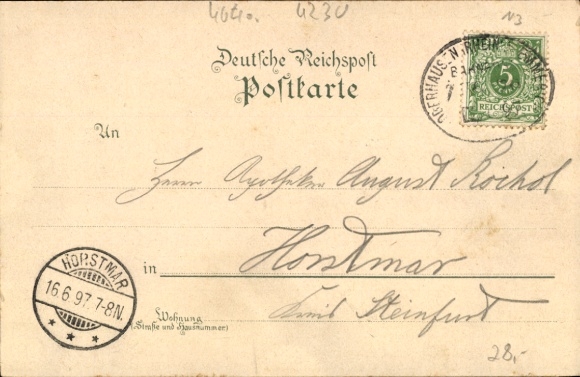 4040. 4230 N3
Deutsche Reichspost
Postkarte
OBERHAUSEN N. RHEINL. EMMERICH
BAHN
5
REICHSPOST
An
Herrn Apotheker August Kochol
in Horstmar
Kreis Steinfurt
Wohnung
(Straße und Hausnummer)
HORSTMAR
16.6.97.7-8N.
28,-